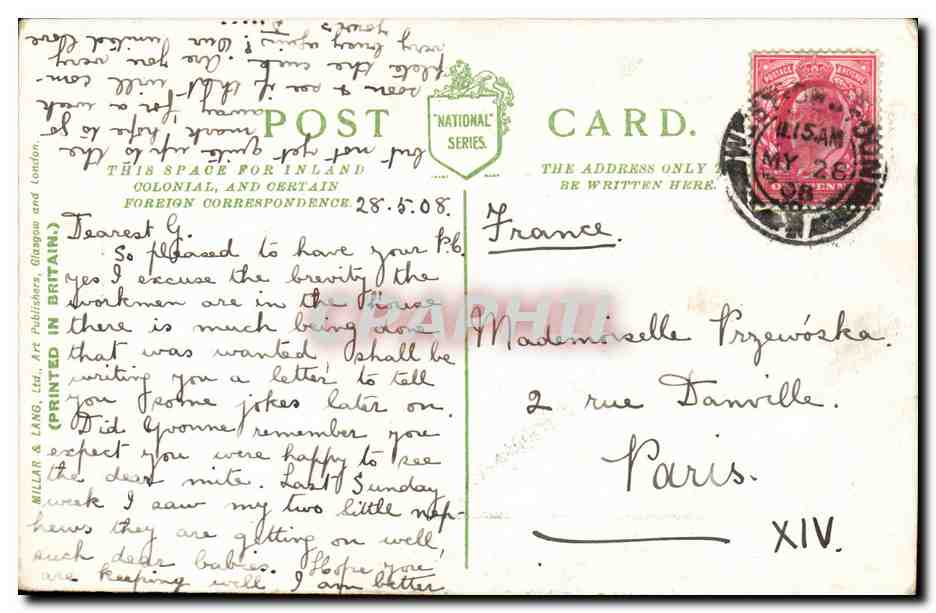 POST CARD.
"NATIONAL"
SERIES.
THIS SPACE FOR INLAND
COLONIAL, AND CERTAIN
FOREIGN CORRESPONDENCE.
THE ADDRESS ONLY
BE WRITTEN HERE.
MILLAR & LANG, Ltd., Art Publishers, Glasgow and London.
(PRINTED IN BRITAIN.)
POSTAGE
11.15AM
MY 28
08
28.5.08.
Dearest G.
So pleased to have your P.C.
yes I excuse the brevity the
workmen are in the house
there is much being done
that was wanted, shall be
writing you a letter, to tell
you some jokes later on.
Did Yvonne remember you
expect you were happy to see
the dear mite. Last Sunday
week I saw my two little nep-
hews they are getting on well,
such dear babies. Hope you
are keeping well I am better
but not yet quite up to the
mark, hope to go
away for a week
soon & see if that will com-
plete the cure. Are you very
very busy again? Our united love
yours
France.
Mademoiselle Przewóska.
2 rue Danville.
Paris.
XIV.
CRAPHTI